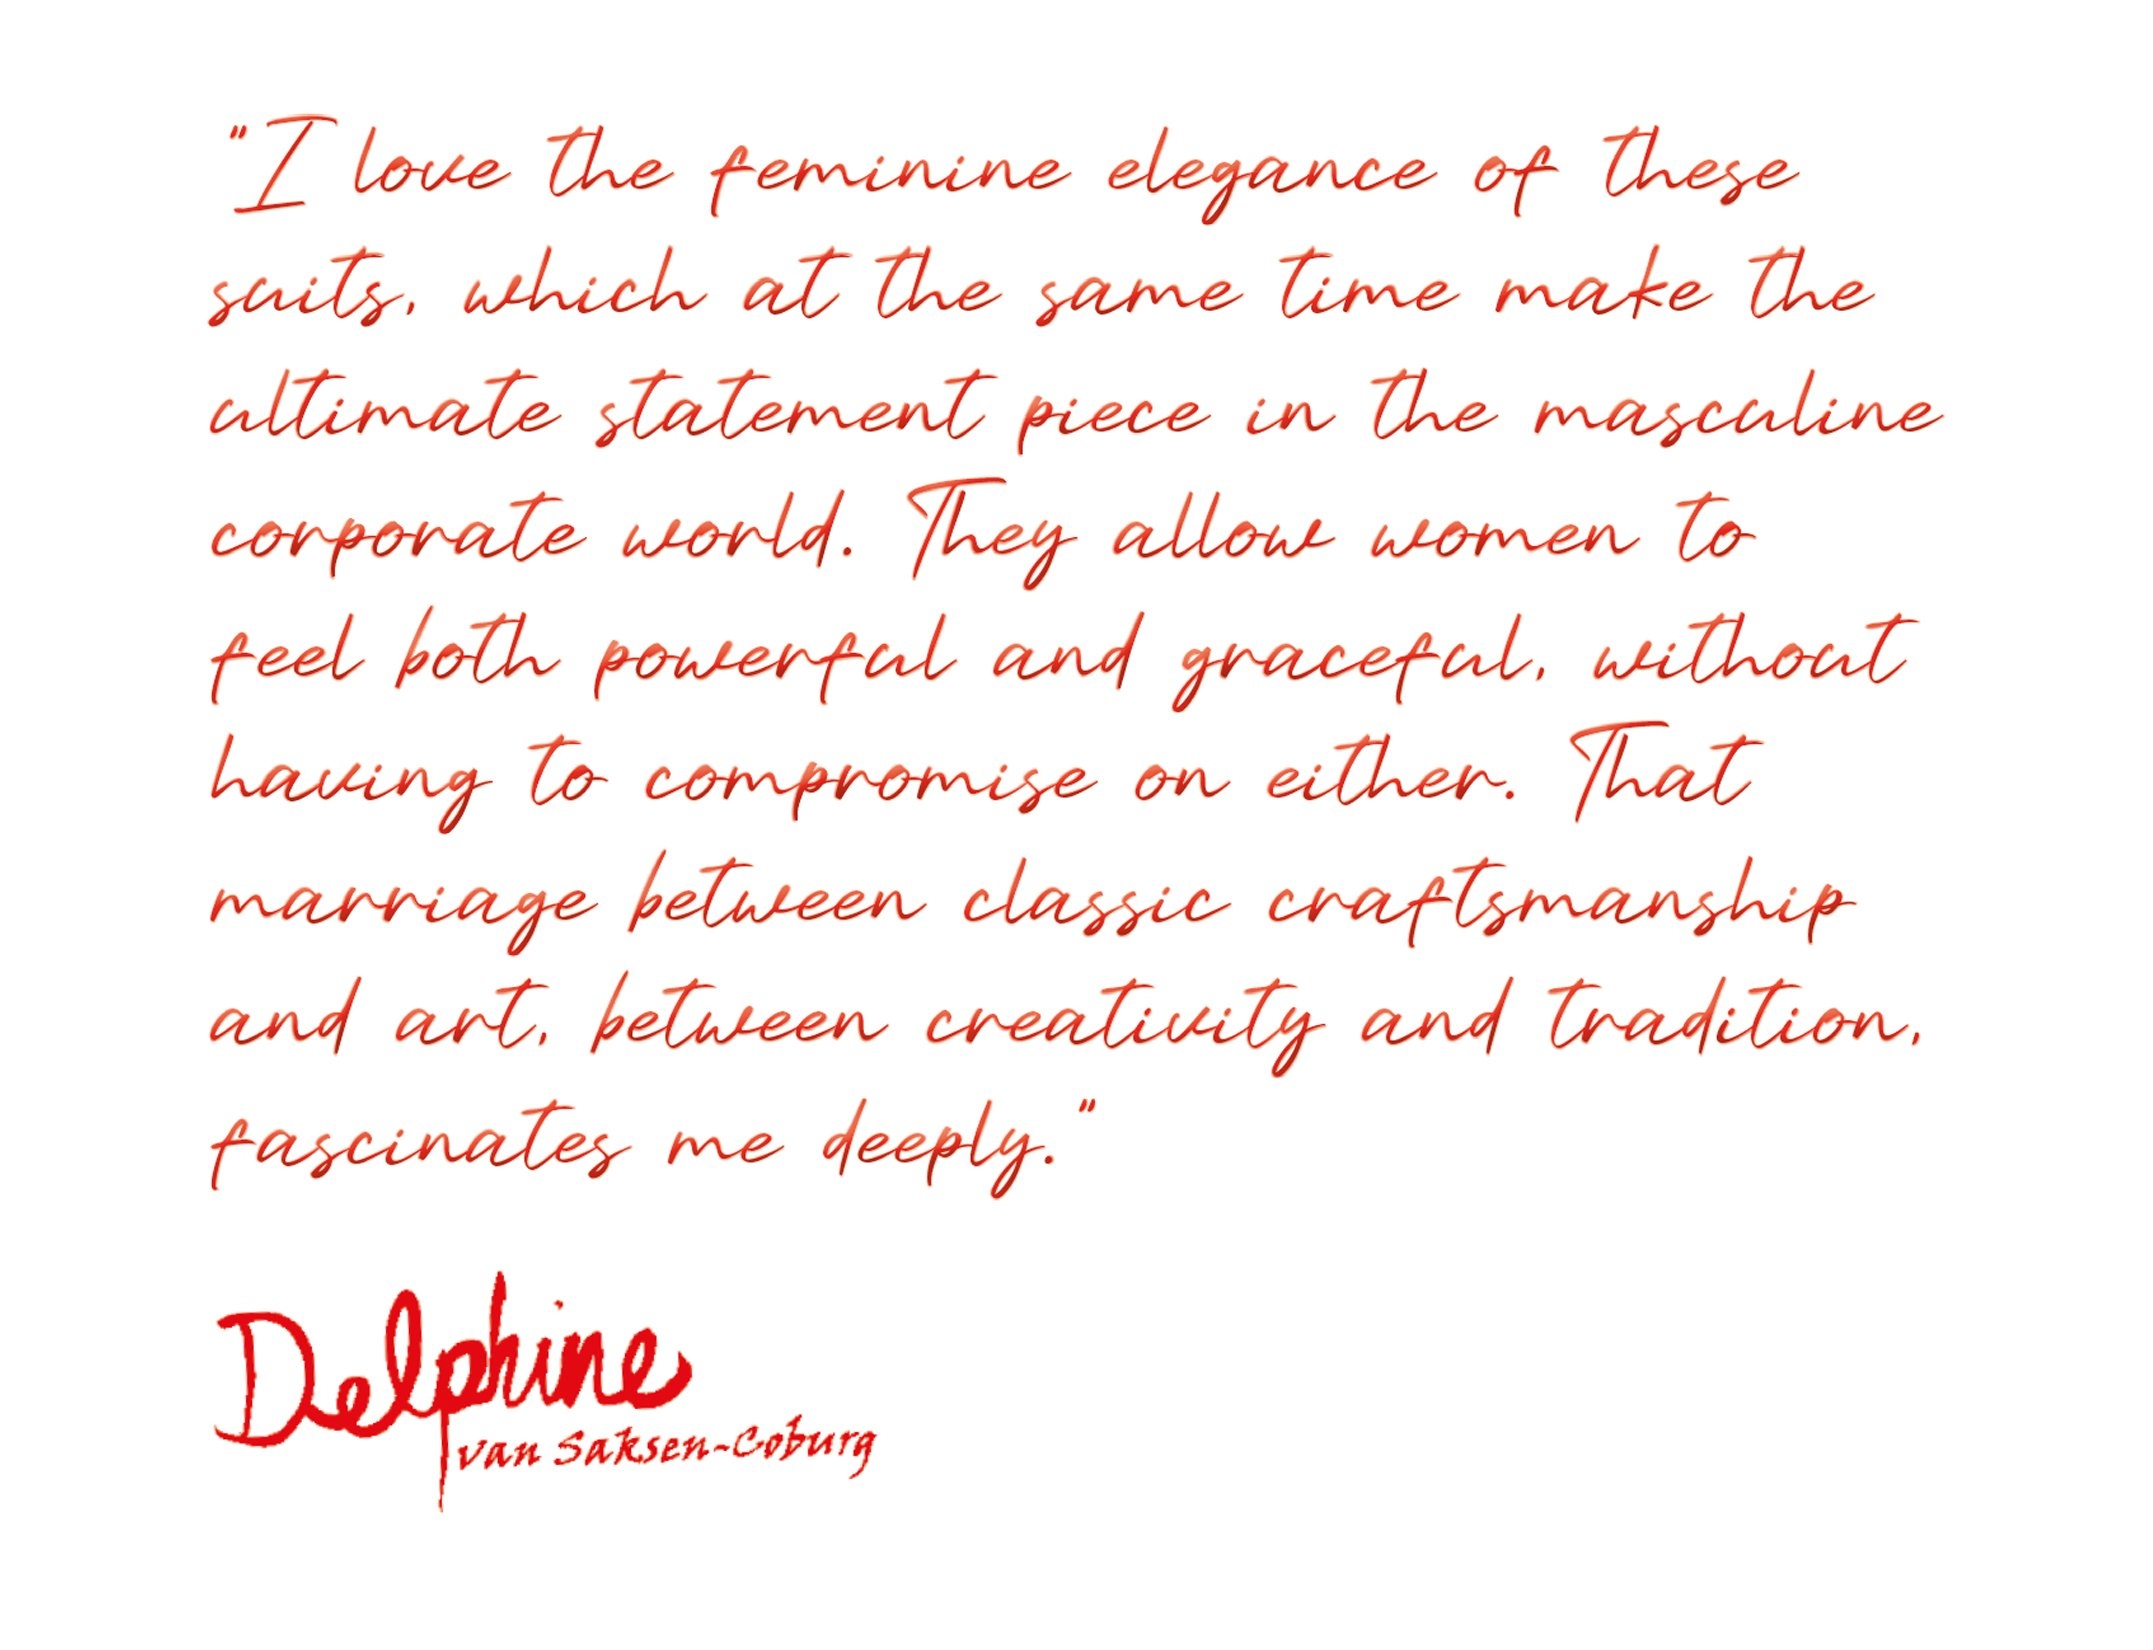 "I love the feminine elegance of these
suits, which at the same time make the
ultimate statement piece in the masculine
corporate world. They allow women to
feel both powerful and graceful, without
having to compromise on either. That
marriage between classic craftsmanship
and art, between creativity and tradition,
fascinates me deeply."
Delphine
van Saksen-Coburg